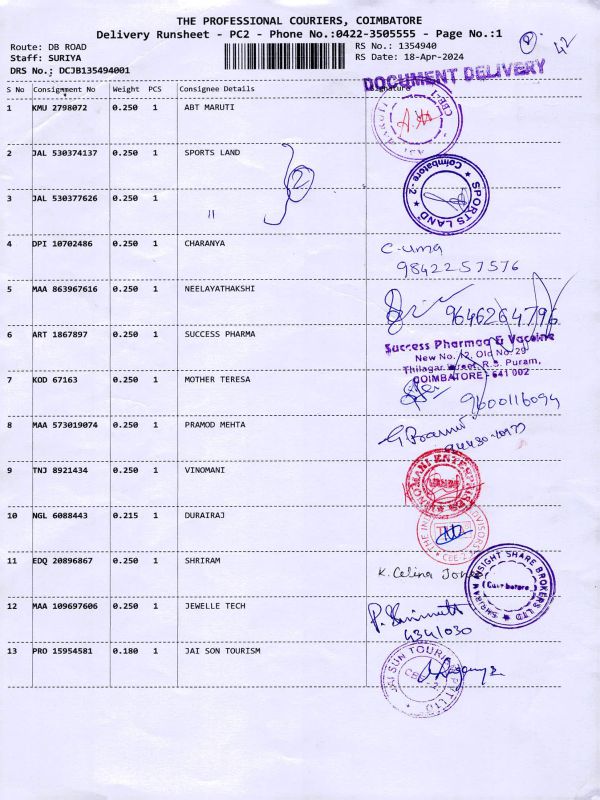 THE PROFESSIONAL COURIERS, COIMBATORE
Delivery Runsheet - PC2 - Phone No.:0422-3505555 - Page No.:1
Route: DB ROAD RS No.: 1354940
Staff: SURIYA RS Date: 18-Apr-2024
DRS No.: DCJB135494001
42
DOCUMENT DELIVERY
S No Consignment No Weight PCS Consignee Details Signature
1 KMU 2798072 0.250 1 ABT MARUTI
2 JAL 530374137 0.250 1 SPORTS LAND
SPORTS LAND
Coimbatore - 2
2
3 JAL 530377626 0.250 1 "
4 DPI 10702486 0.250 1 CHARANYA
C-uma
9842257576
5 MAA 863967616 0.250 1 NEELAYATHAKSHI
9646264796
6 ART 1867897 0.250 1 SUCCESS PHARMA
Success Pharmaa & Vaccine
New No. 12, Old No. 29
Thilagar Street, R.S. Puram,
COIMBATORE - 641 002
7 KOD 67163 1 0.250 MOTHER TERESA
9600116094
8 MAA 573019074 0.250 1 PRAMOD MEHTA
9 TNJ 8921434 0.250 1 VINOMANI
VINOMANI ENTERPRISES
10 NGL 6088443 0.215 1 DURAIRAJ
11 EDQ 20896867 0.250 1 SHRIRAM
K. Celina
SHRIRAM INSIGHT SHARE BROKERS LTD
Coimbatore
12 MAA 109697606 0.250 1 JEWELLE TECH
434/030
13 PRO 15954581 0.180 1 JAI SON TOURISM
JAI SUN TOURISM PVT LTD